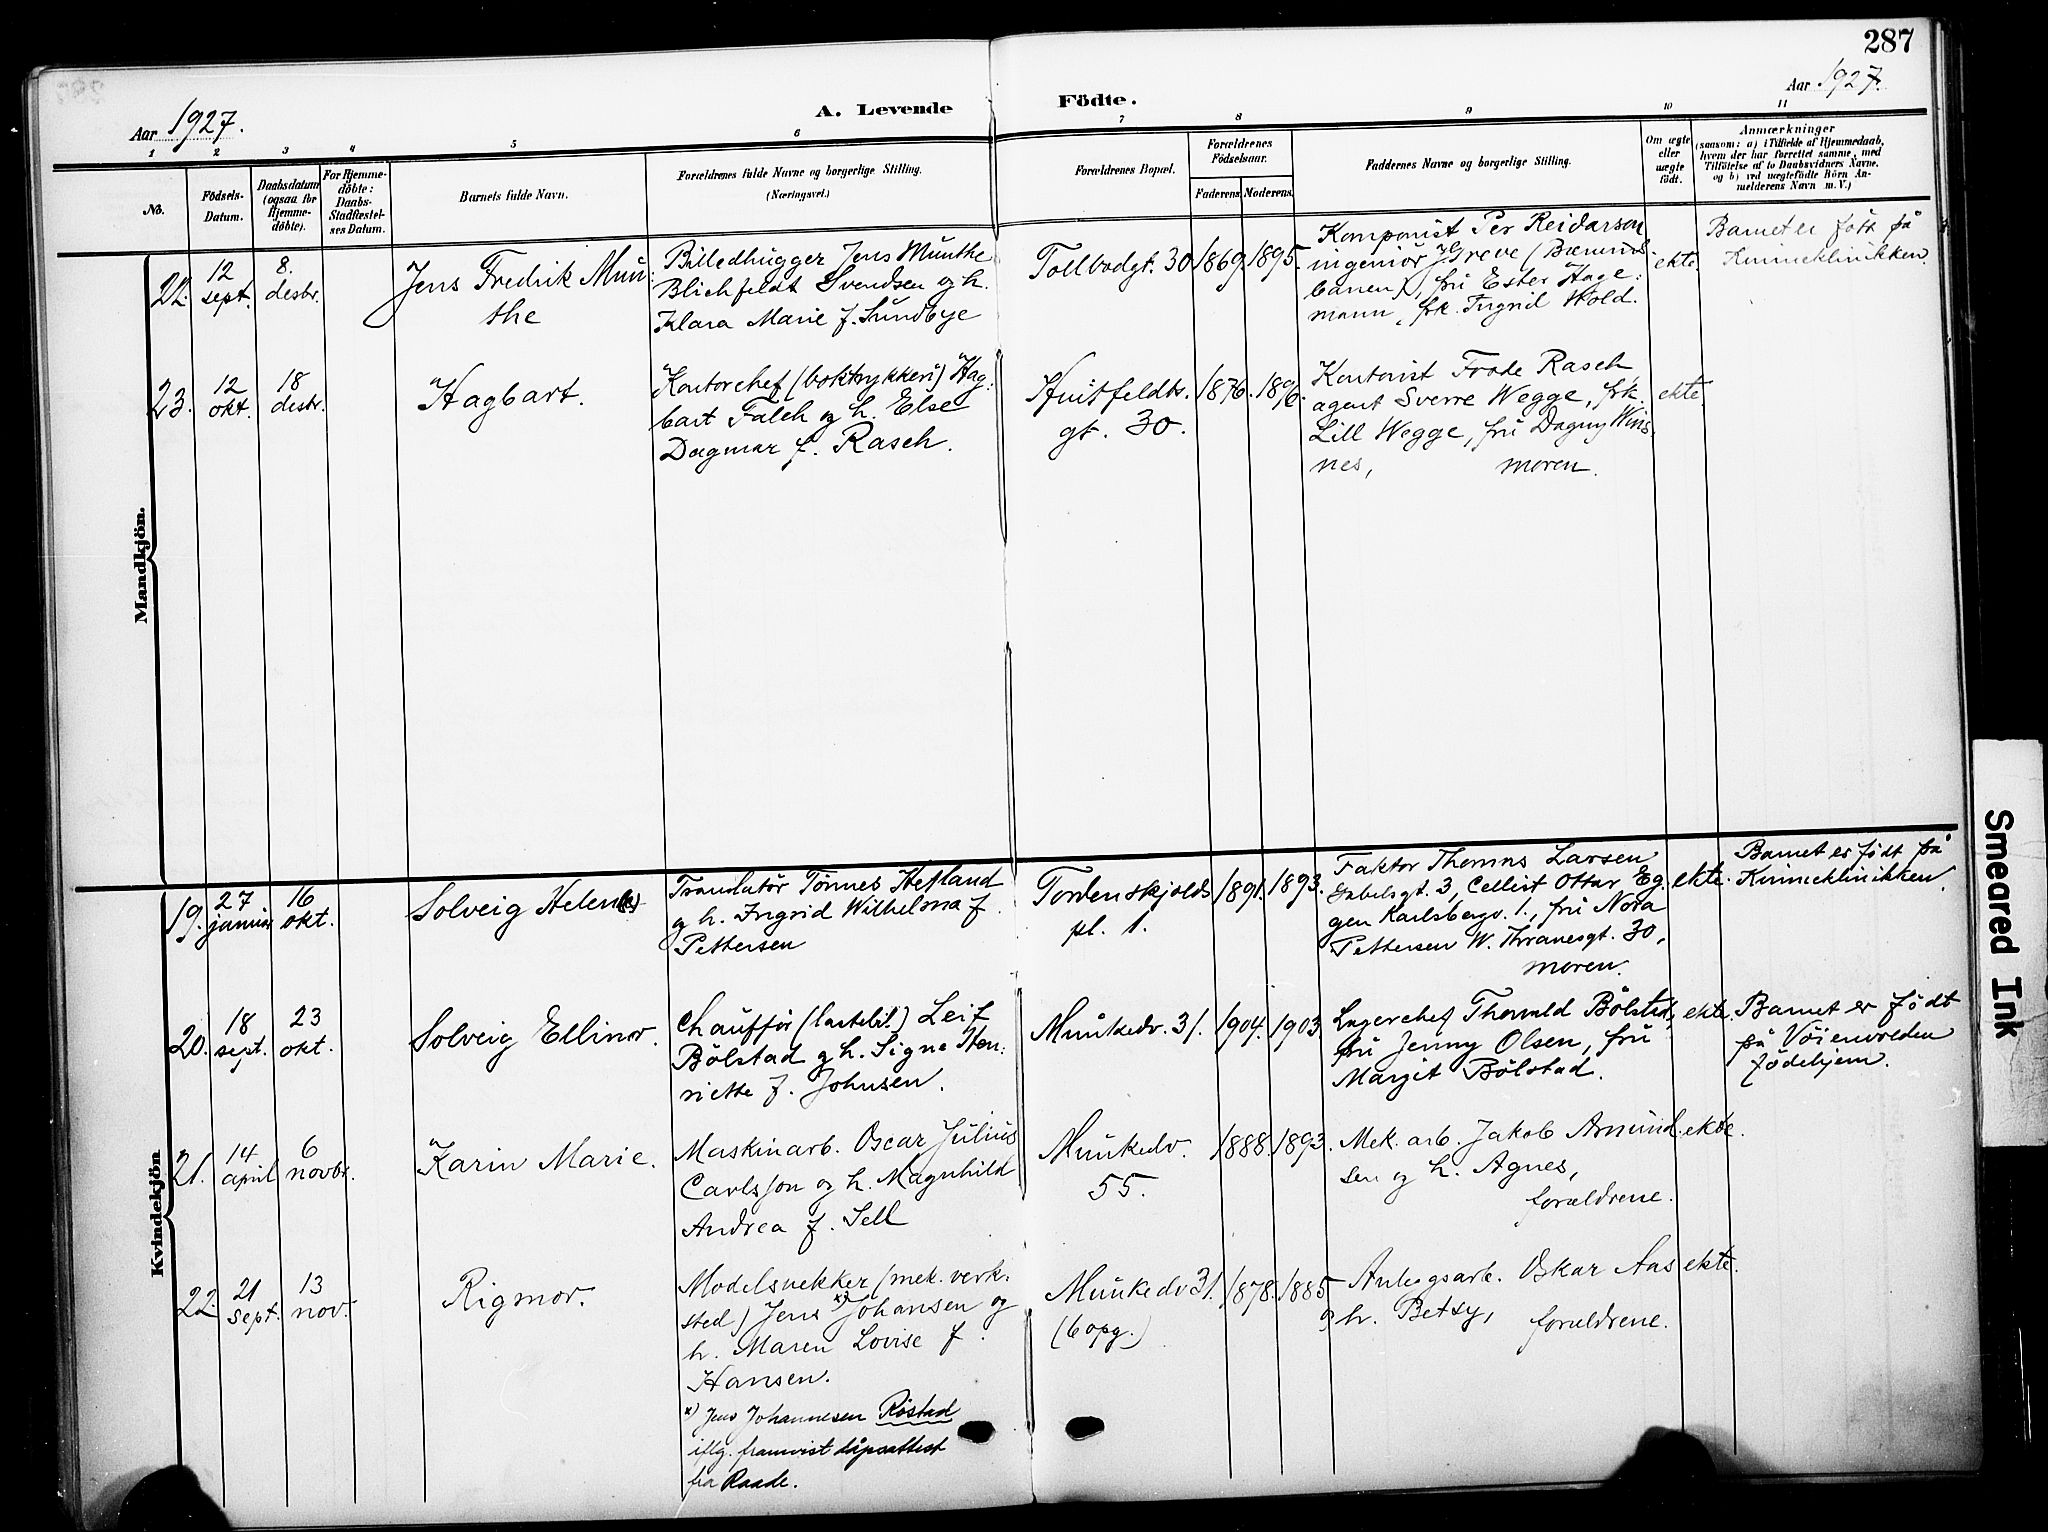 287
Aar 1927.
A. Levende Födte.
Aar 1927.
1 2 3 4 5 6 7 8 9 10 11
No.
Födsels-
Datum.
Daabsdatum
(ogsaa for
Hjemme-
döbte).
For Hjemme-
döbte:
Daabs-
Stadfæstel-
ses Datum.
Barnets fulde Navn.
Forældrenes fulde Navne og borgerlige Stilling.
(Næringsvei.)
Forældrenes Bopæl.
Forældrenes
Födselsaar.
Faderens. Moderens.
Faddernes Navne og borgerlige Stilling.
Om ægte
eller
uægte
födt.
Anmærkninger
(saasom: a) i Tilfælde af Hjemmedaab,
hvem der har forrettet samme, med
Tilföielse af to Daabsvidners Navne,
og b) ved uægtefödte Börn An-
melderens Navn m. V.)
Mandkjön.
22.
12
sept.
8.
desbr.
Jens Fredrik Mun:
the
Billedhugger Jens Munthe
Blichfeldt Svendsen og h.
Klara Marie f. Sundbye
Tollbodgt. 30
1869.
1895.
Komponist Per Reidarson
ingeniör Greve (Bærums
banen), fru Ester Hage:
mann, frk. Ingrid Wold.
ekte.
Barnet er født på
Kvinneklinikken.
23.
12
okt.
18
desbr.
Hagbart.
Kontorchef (boktrykkeri) Hag:
bart Falch og h. Else
Dagmar f. Rasch.
Huitfeldts.
gt. 30.
1876.
1896.
Kontorist Frode Rasch,
agent Sverre Wegge, frk.
Lill Wegge, fru Dagny Wins
nes, moren.
ekte.
Kvindekjön
19.
27
januar
16
okt.
Solveig Helen(e)
Translatör Tönnes Hefland
og h. Ingrid Wilhelma f.
Pettersen
Tordenskjolds
pl. 1.
1891.
1893.
Faktor Thomas Larsen
Gabelsgt. 3, Cellist Ottar Eg
gen Karlsbergv. 1., fru Nora
Pettersen W. Thranesgt. 30,
moren.
ekte.
Barnet er født på
Kvinneklinikken.
20.
18
sept.
23
okt.
Solveig Ellinor.
Chaufför (lastebil.) Leif
Bölstad og h. Signe Hen:
riette f. Johnsen.
Munkedv. 31.
1904.
1903.
Lagerchef Thorvald Bölstad,
fru Jenny Olsen, fru
Margit Bölstad.
ekte.
Barnet er født
på Vöienvolden
fødehjem.
21.
14
april
6
novbr.
Karin Marie.
Maskinarb. Oscar Julius
Carlsson og h. Magnhild
Andrea f. Sell
Munkedv.
55.
1888.
1893.
Mek. arb. Jakob Amund
sen og h. Agnes,
foreldrene.
ekte.
22.
21
sept.
13
nov.
Rigmor.
Modelsnekker (mek. verk:
sted) Jens x) Johansen og
h. Maren Lovise f.
Hansen.
x) Jens Johannesen Röstad
iflg. framvist dåpsattest
fra Raade.
Munkedv 31.
(6 opg.)
1878.
1885
Anleggsarb. Oskar Aas
og h. Betsy, foreldrene.
ekte.
Smeared Ink